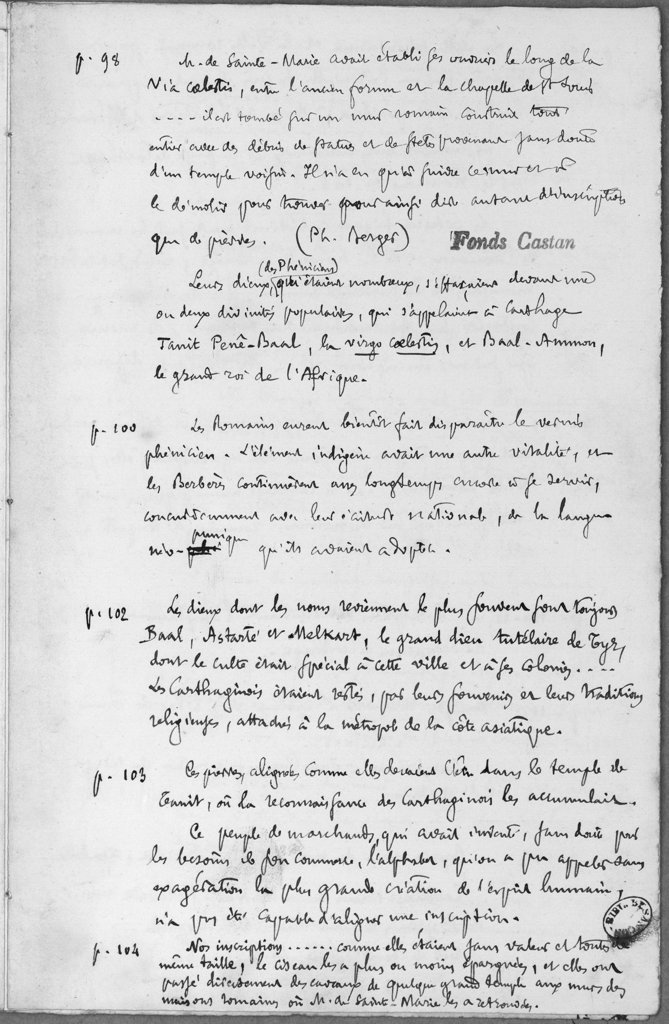 p. 98 M. de Sainte-Marie avait établi ses ouvriers le long de la
Via cœlestis, entre l'ancien forum et la chapelle de St Louis
.... il est tombé sur un mur romain construit tout
entier avec des débris de statues et de stèles provenant sans doute
d'un temple voisin. Il n'a eu qu'à suivre ce mur et à
le démolir pour trouver pour ainsi dire autant d'inscriptions
que de pierres. (Ph. Berger)
Fonds Castan
(des Phéniciens)
Leurs dieux, qui étaient nombreux, s'effaçaient devant une
ou deux divinités populaires, qui s'appelaient à Carthage
Tanit Penê-Baal, la virgo cœlestis, et Baal-Ammon,
le grand roi de l'Afrique.
p. 100 Les Romains eurent bientôt fait disparaître le vernis
phénicien. L'élément indigène avait une autre vitalité, et
les Berbères continuèrent assez longtemps encore à se servir,
concurremment avec leur écriture nationale, de la langue
punique
néo- qu'ils avaient adoptée.
p. 102 Les dieux dont les noms reviennent le plus souvent sont toujours
Baal, Astarté et Melkart, le grand dieu tutélaire de Tyr,
dont le culte était spécial à cette ville et à ses colonies....
Les Carthaginois étaient restés, par leurs souvenirs et leurs traditions
religieuses, attachés à la métropole de la côte asiatique.
p. 103 Ces pierres, alignées comme elles devaient l'être dans le temple de
Tanit, où la reconnaissance des Carthaginois les accumulait.
Ce peuple de marchands, qui avait inventé, sans doute pour
les besoins de son commerce, l'alphabet, qu'on a pu appeler sans
exagération la plus grande création de l'esprit humain,
n'a pas été capable d'aligner une inscription.
p. 104 Nos inscriptions ...... comme elles étaient sans valeur et toutes de
même taille, le ciseau les a plus ou moins épargnées, et elles ont
passé directement des caveaux de quelque grand temple aux murs des
maisons romaines où M. de Sainte-Marie les a retrouvées.